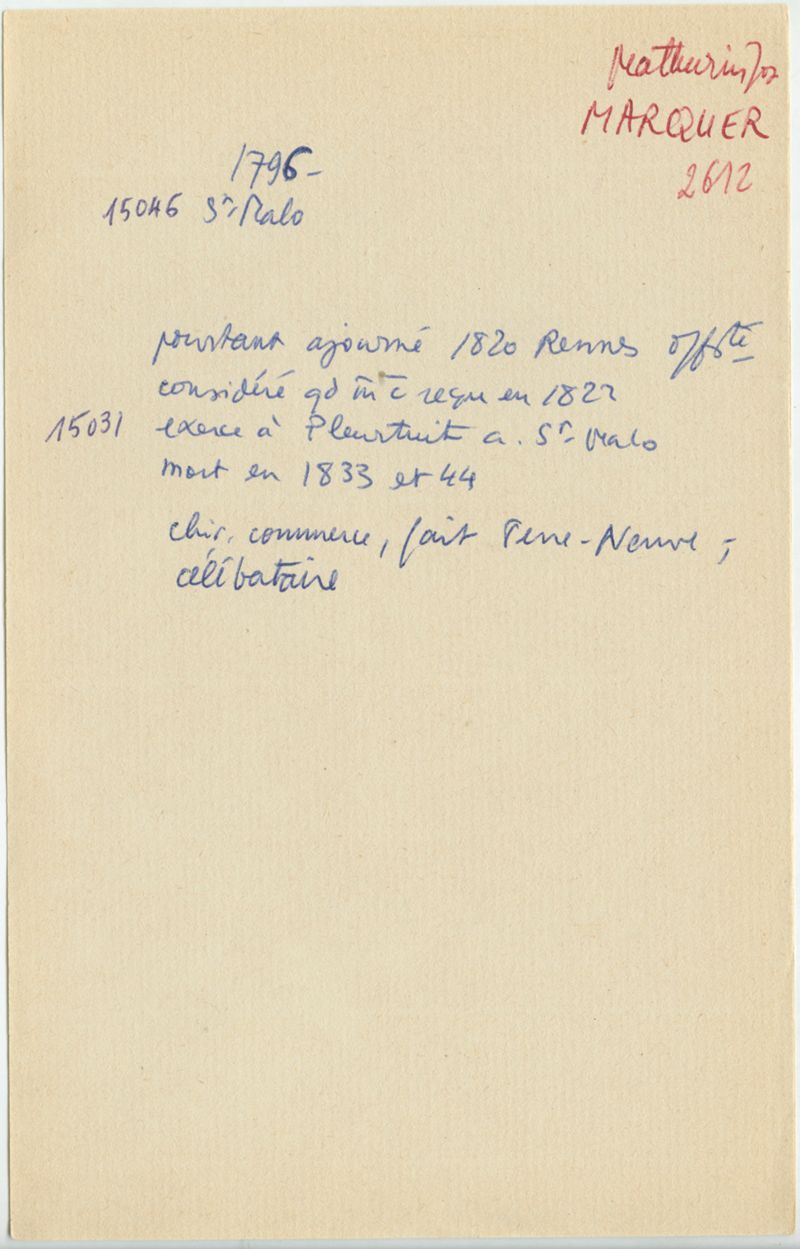 Mathurin Jos
MARQUER
2612
1796-
15046 St-Malo
pourtant ajourné 1820 Rennes offté
considéré qd m̄ c̄ reçu en 1822
15031 exerce à Pleurtuit a. St-Malo
mort en 1833 et 44
chir. commerce, fait Terre-Neuve,
célibataire